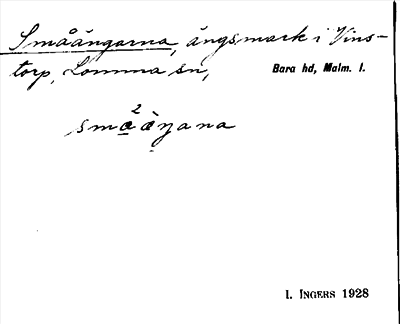 Småängarna, ängsmark i Vins-
torp, Lomma sn, Bara hd, Malm. l.
2
små̱ä̀ŋana
I. INGERS 1928